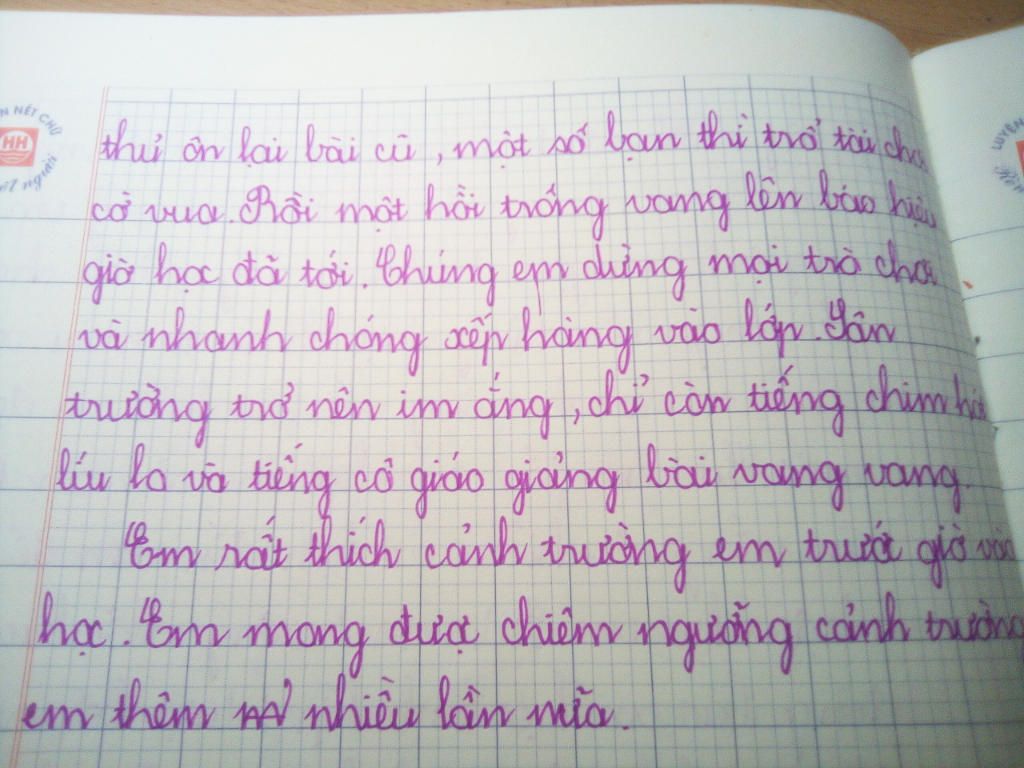 thủ ôn lại bài cũ, một số bạn thì trổ tài chơi
cờ vua. Rồi một hồi trống vang lên báo hiệu
giờ học đã tới. Chúng em dừng mọi trò chơi
và nhanh chóng xếp hàng vào lớp. Sân
trường trở nên im ắng, chỉ còn tiếng chim hót
líu lo và tiếng cô giáo giảng bài vang vang.
Em rất thích cảnh trường em trước giờ vào
học. Em mong được chiêm ngưỡng cảnh trường
em thêm nhiều lần nữa.
HH
NÉT CHỮ
người
LUYỆN